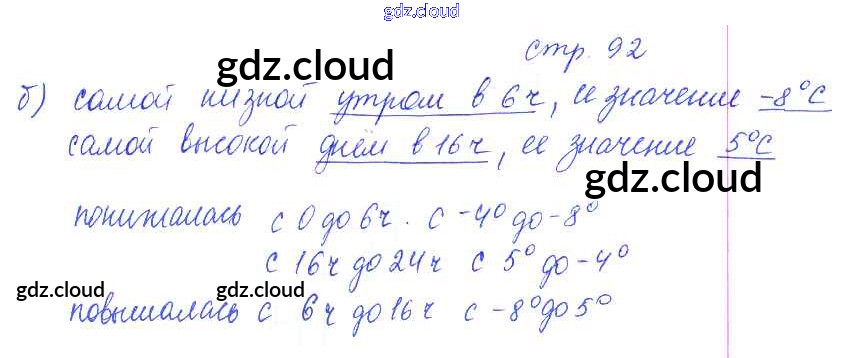 gdz.cloud
стр. 92
gdz.cloud
б) самой низкой утром в 6ч, ее значение -8°С
самой высокой днём в 16ч, ее значение 5°С
gdz.cloud
понижалась с 0 до 6ч. с -4° до -8°
с 16ч до 24ч с 5° до -4°
gdz.cloud gdz.cloud
повышалась с 6ч до 16ч с -8° до 5°